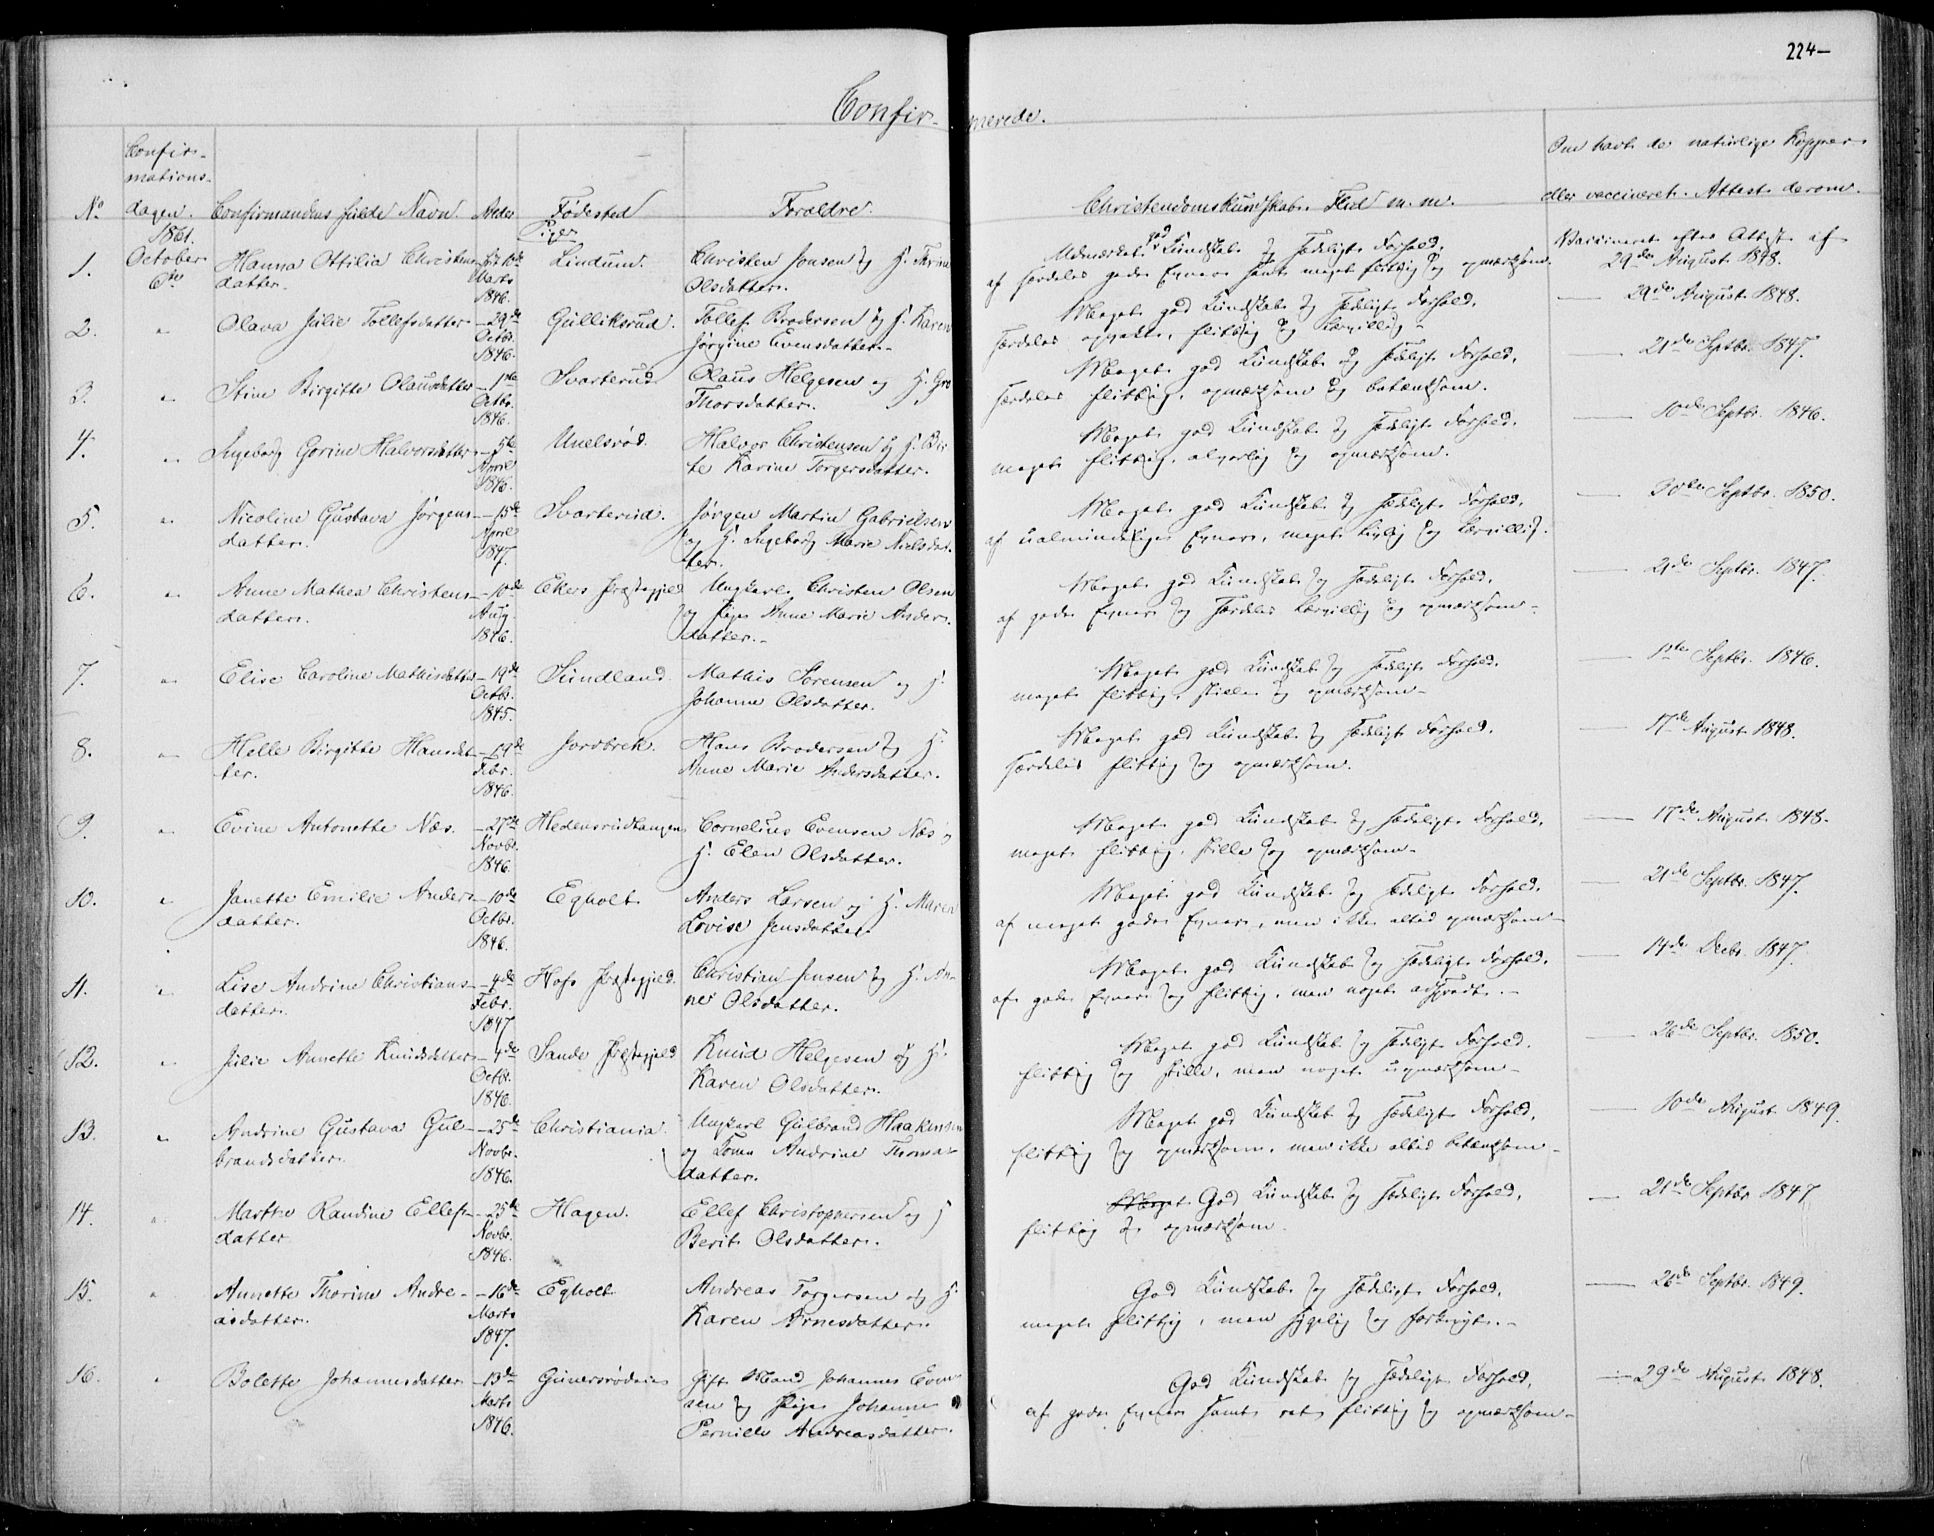 224—
Confir-
merede.
No
Confir-
mations-
dagen.
Confirmandens fulde Navn.
Alder
Fødested
Forældre.
Christendomskundskab. Flid m. m.
Om havt de naturlige Kopper
eller vaccineret. Attest derom.
1861.
Piger
1. October 6te Hanna Ottilia Christens-
datter.
Marts
1846.
Lindum.
Christen Jonsen og H. Thrine
Olsdatter.
Udmærket god Kundskab og sædeligt Forhold,
af særdeles gode Evner samt meget flittig og opmærksom.
Vaccineret efter Attest af
29de August 1848.
2. " Olava Julie Tollefsdatter
— 29de
Octbr.
1846.
Gulliksrud.
Tollef Brodersen og H. Karen
Jørgine Evensdatter.
Meget god Kundskab og sædeligt Forhold,
særdeles opvakt, flittig og lærvillig—
— 29de August 1848.
3. " Stine Birgitte Olausdatter
— 1ste
Octbr.
1846.
Svarterud.
Olaus Helgesen og H. Gro
Thorsdatter.
Meget god Kundskab og sædeligt Forhold,
særdeles flittig, opmærksom og betænksom.
— 21de Septbr. 1847.
4. " Ingeborg Gorine Halvorsdatter
— 5te
April
1846.
Unelsrød.
Halvor Christensen og H. Bir-
te Karine Torgersdatter.
Meget god Kundskab og sædeligt Forhold,
meget flittig, alvorlig og opmærksom.
— 10de Septbr. 1846.
5. " Nicoline Gustava Jørgens-
datter.
— 15de
April
1847.
Svarterud.
Jørgen Martin Gabrielsen
og H. Ingeborg Marie Nielsdat-
ter.
Meget god Kundskab og sædeligt Forhold,
af ualmindelige Evner, meget livlig og lærvillig.
— Septbr. 1850.
6. " Anne Mathea Christens-
datter.
— 10de
Aug.
1846.
Ekers Præstegjeld
Ungkarl Christen Olsen
og Pige Anne Marie Anders-
datter.—
Meget god Kundskab og sædeligt Forhold,
af gode Evner og særdeles lærvillig og opmærksom—
— 21de Septbr. 1847.
7. " Elise Caroline Mathisdatter
— 19de
Octbr.
1845.
Sundland.
Mathis Sørensen og H.
Johanne Olsdatter.
Meget god Kundskab og sædeligt Forhold,
meget flittig, stille og opmærksom—
— 1ste Septbr. 1846.
8. " Helle Birgitte Hansdat-
ter.
— 19de
Febr.
1846.
Jordbrek.
Hans Brodersen og H.
Anne Marie Andersdatter.
Meget god Kundskab og sædeligt Forhold,
særdeles flittig og opmærksom.
— 17de August 1848.
9. " Evine Antonette Næs.
— 27de
Novbr.
1846.
Hedensrudtangen
Cornelius Evensen Næs og
H. Elen Olsdatter.
Meget god Kundskab og sædeligt Forhold,
meget flittig, stille og opmærksom—
— 17de August 1848.
10. " Janette Emilie Anders-
datter.
— 10de
Octbr.
1846.
Egholt
Anders Larsen og H. Maren
Lovise Jensdatter
Meget god Kundskab og sædeligt Forhold,
af meget gode Evner, men ikke altid opmærksom—
— 21de Septbr. 1847.
11. " Lise Andrine Christians-
datter.
— 4de
Febr.
1847
Hofs Præstegjeld.
Christian Jensen og H. An-
ne Olsdatter.
Meget god Kundskab og sædeligt Forhold,
af gode Evner og flittig, men noget adspredt.—
— 14de Decbr. 1847.
12. " Julie Annette Knudsdatter
— 4de
Octbr.
1846.
Sande Præstegjeld
Knud Helgesen og H.
Karen Olsdatter.
Meget god Kundskab og sædeligt Forhold,
flittig og stille, men noget uopmærksom—
— 26de Septbr. 1850.
13. " Andrine Gustava Gul-
brandsdatter.
— 25de
Novbr.
1846.
Christiania.
Ungkarl Gulbrand Haakensen
og Kone Andrine Thomas-
datter.
Meget god Kundskab og sædeligt Forhold,
flittig og opmærksom, men ikke altid betænksom—
— 10de August 1849.
14. " Marthe Randine Ellefs-
datter
— 25de
Novbr.
1846.
Hagen.
Ellef Christophersen og H
Berit Olsdatter.
Meget God Kundskab og sædeligt Forhold,
flittig og opmærksom.
— 21de Septbr 1847
15. " Annette Thorine Andre-
asdatter.
— 16de
Marts
1847.
Egholt
Andreas Torgersen og H.
Karen Arnesdatter.
God Kundskab og sædeligt Forhold,
meget flittig, men sygelig og forknyt.—
— 26de Septbr. 1849.
16. " Bolette Johannesdatter
— 13de
Marts
1846.
Gunersrødeie
Gift Mand Johannes Even-
sen og Pige Johanne
Pernille Andreasdatter.
God Kundskab og sædeligt Forhold,
af gode Evner samt ret flittig og opmærksom—
— 29de August 1848.